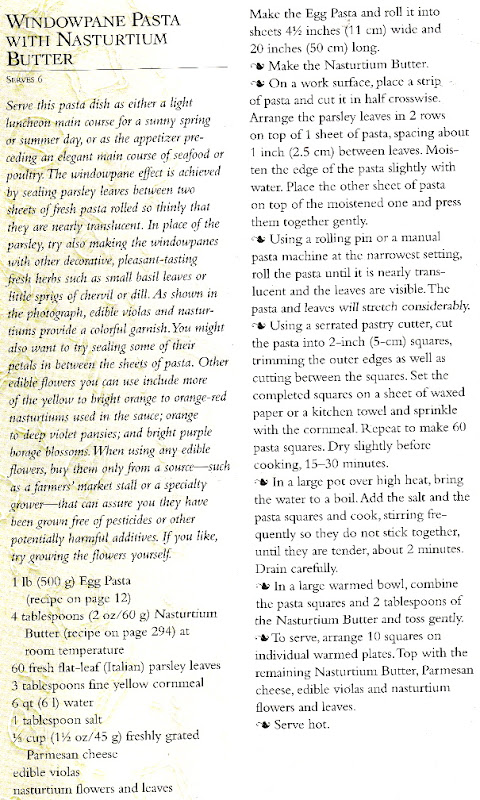 WINDOWPANE PASTA
WITH NASTURTIUM
BUTTER
SERVES 6
Serve this pasta dish as either a light
luncheon main course for a sunny spring
or summer day, or as the appetizer pre-
ceding an elegant main course of seafood or
poultry. The windowpane effect is achieved
by sealing parsley leaves between two
sheets of fresh pasta rolled so thinly that
they are nearly translucent. In place of the
parsley, try also making the windowpanes
with other decorative, pleasant-tasting
fresh herbs such as small basil leaves or
little sprigs of chervil or dill. As shown in
the photograph, edible violas and nastur-
tiums provide a colorful garnish. You might
also want to try sealing some of their
petals in between the sheets of pasta. Other
edible flowers you can use include more
of the yellow to bright orange to orange-red
nasturtiums used in the sauce; orange
to deep violet pansies; and bright purple
borage blossoms. When using any edible
flowers, buy them only from a source—such
as a farmers' market stall or a specialty
grower—that can assure you they have
been grown free of pesticides or other
potentially harmful additives. If you like,
try growing the flowers yourself.
1 lb (500 g) Egg Pasta
(recipe on page 12)
4 tablespoons (2 oz/60 g) Nasturtium
Butter (recipe on page 294) at
room temperature
60 fresh flat-leaf (Italian) parsley leaves
3 tablespoons fine yellow cornmeal
6 qt (6 l) water
1 tablespoon salt
⅓ cup (1½ oz/45 g) freshly grated
Parmesan cheese
edible violas
nasturtium flowers and leaves
Make the Egg Pasta and roll it into
sheets 4½ inches (11 cm) wide and
20 inches (50 cm) long.
Make the Nasturtium Butter.
On a work surface, place a strip
of pasta and cut it in half crosswise.
Arrange the parsley leaves in 2 rows
on top of 1 sheet of pasta, spacing about
1 inch (2.5 cm) between leaves. Mois-
ten the edge of the pasta slightly with
water. Place the other sheet of pasta
on top of the moistened one and press
them together gently.
Using a rolling pin or a manual
pasta machine at the narrowest setting,
roll the pasta until it is nearly trans-
lucent and the leaves are visible. The
pasta and leaves will stretch considerably.
Using a serrated pastry cutter, cut
the pasta into 2-inch (5-cm) squares,
trimming the outer edges as well as
cutting between the squares. Set the
completed squares on a sheet of waxed
paper or a kitchen towel and sprinkle
with the cornmeal. Repeat to make 60
pasta squares. Dry slightly before
cooking, 15–30 minutes.
In a large pot over high heat, bring
the water to a boil. Add the salt and the
pasta squares and cook, stirring fre-
quently so they do not stick together,
until they are tender, about 2 minutes.
Drain carefully.
In a large warmed bowl, combine
the pasta squares and 2 tablespoons of
the Nasturtium Butter and toss gently.
To serve, arrange 10 squares on
individual warmed plates. Top with the
remaining Nasturtium Butter, Parmesan
cheese, edible violas and nasturtium
flowers and leaves.
Serve hot.